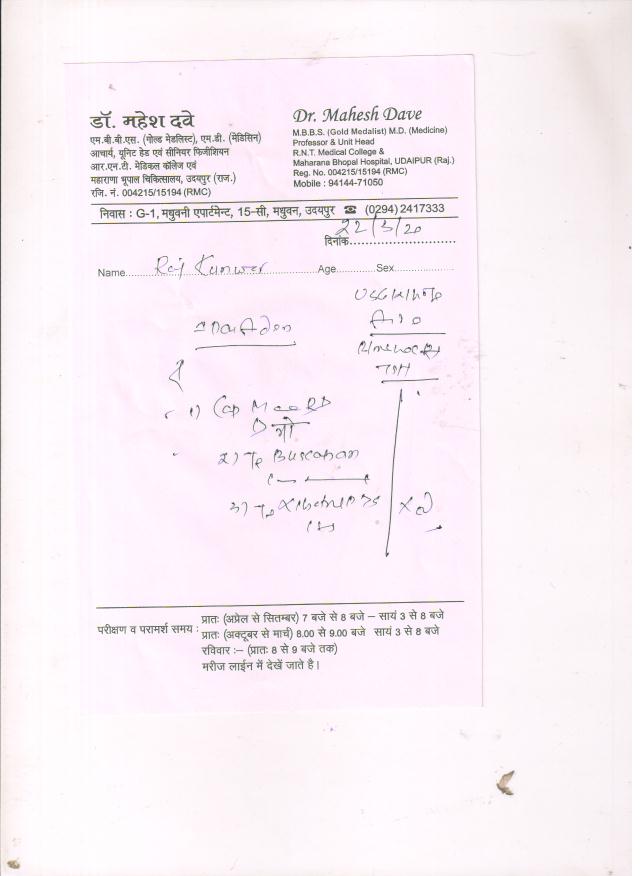 डॉ. महेश दवे
एम.बी.बी.एस. (गोल्ड मेडलिस्ट), एम.डी. (मेडिसिन)
आचार्य, यूनिट हेड एवं सीनियर फिजीशियन
आर.एन.टी. मेडिकल कॉलेज एवं
महाराणा भूपाल चिकित्सालय, उदयपुर (राज.)
रजि. नं. 004215/15194 (RMC)
Dr. Mahesh Dave
M.B.B.S. (Gold Medalist) M.D. (Medicine)
Professor & Unit Head
R.N.T. Medical College &
Maharana Bhopal Hospital, UDAIPUR (Raj.)
Reg. No. 004215/15194 (RMC)
Mobile : 94144-71050
निवास : G-1, मधुवनी एपार्टमेन्ट, 15-सी, मधुवन, उदयपुर ☎ (0294) 2417333
दिनांक 22/3/20
Name Raj Kunwer Age Sex
TSH
1) Cap
2) Tb Buscopan
3) Tb
परीक्षण व परामर्श समय :
प्रातः (अप्रेल से सितम्बर) 7 बजे से 8 बजे – सायं 3 से 8 बजे
प्रातः (अक्टूबर से मार्च) 8.00 से 9.00 बजे सायं 3 से 8 बजे
रविवार :– (प्रातः 8 से 9 बजे तक)
मरीज लाईन में देखें जाते है।